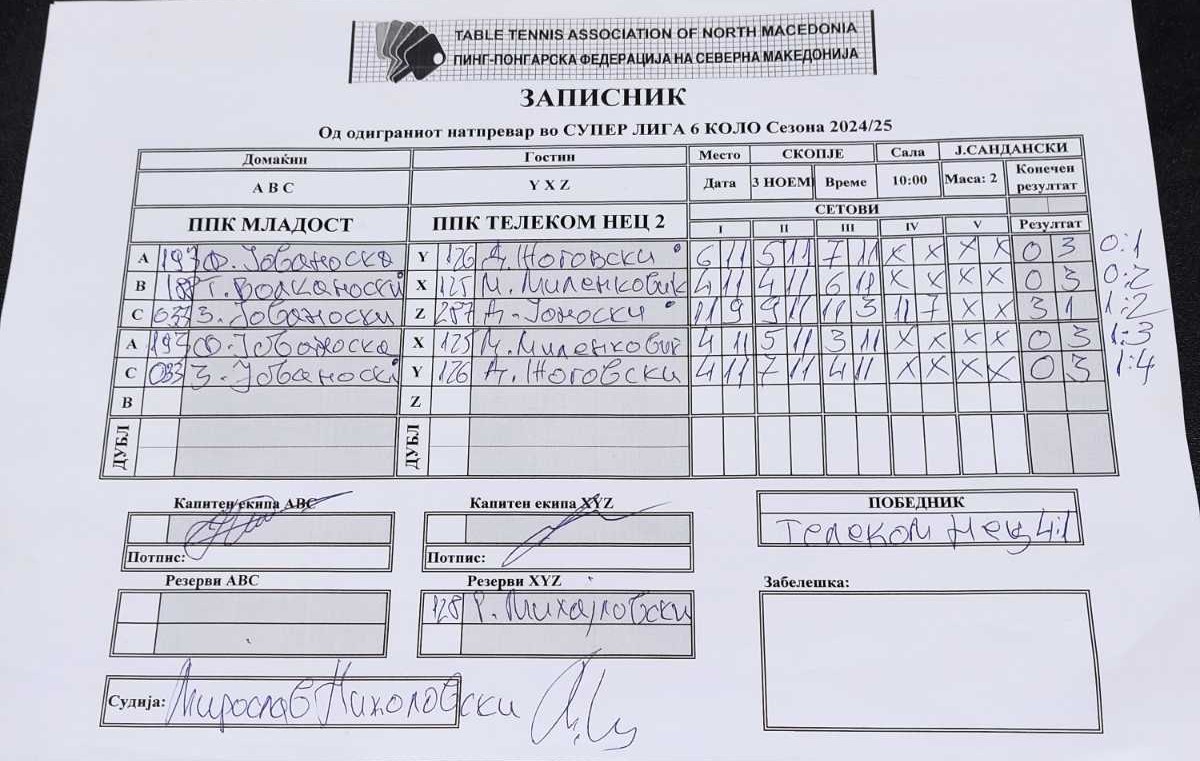 TABLE TENNIS ASSOCIATION OF NORTH MACEDONIA
ПИНГ-ПОНГАРСКА ФЕДЕРАЦИЈА НА СЕВЕРНА МАКЕДОНИЈА
ЗАПИСНИК
Од одиграниот натпревар во СУПЕР ЛИГА 6 КОЛО Сезона 2024/25
Домаќин Гостин Место СКОПЈЕ Сала Ј.САНДАНСКИ
A B C Y X Z Дата 3 НОЕМ Време 10:00 Маса: 2 Конечен резултат
ППК МЛАДОСТ ППК ТЕЛЕКОМ НЕЦ 2 СЕТОВИ
I II III IV V Резултат
A 193 Ф. Јованоска Y 126 Д. Ноговски 6 11 5 11 7 11 X X X X 0 3 0:1
B Т. Волканоски X 125 М. Миленковиќ 4 11 4 11 6 11 X X X X 0 3 0:2
C 033 З. Јованоски Z 287 А. Јоноски 11 9 9 11 11 3 11 7 X X 3 1 1:2
A 193 Ф. Јованоска X 125 М. Миленковиќ 4 11 5 11 3 11 X X X X 0 3 1:3
C 033 З. Јованоски Y 126 Д. Ноговски 4 11 7 11 4 11 X X X X 0 3 1:4
B Z
ДУБЛ ДУБЛ
Капитен екипа ABC Капитен екипа XYZ ПОБЕДНИК
Телеком Нец 4:1
Потпис: Потпис:
Резерви ABC Резерви XYZ Забелешка:
128 Р. Михајловски
Судија: Мирослав Николовски